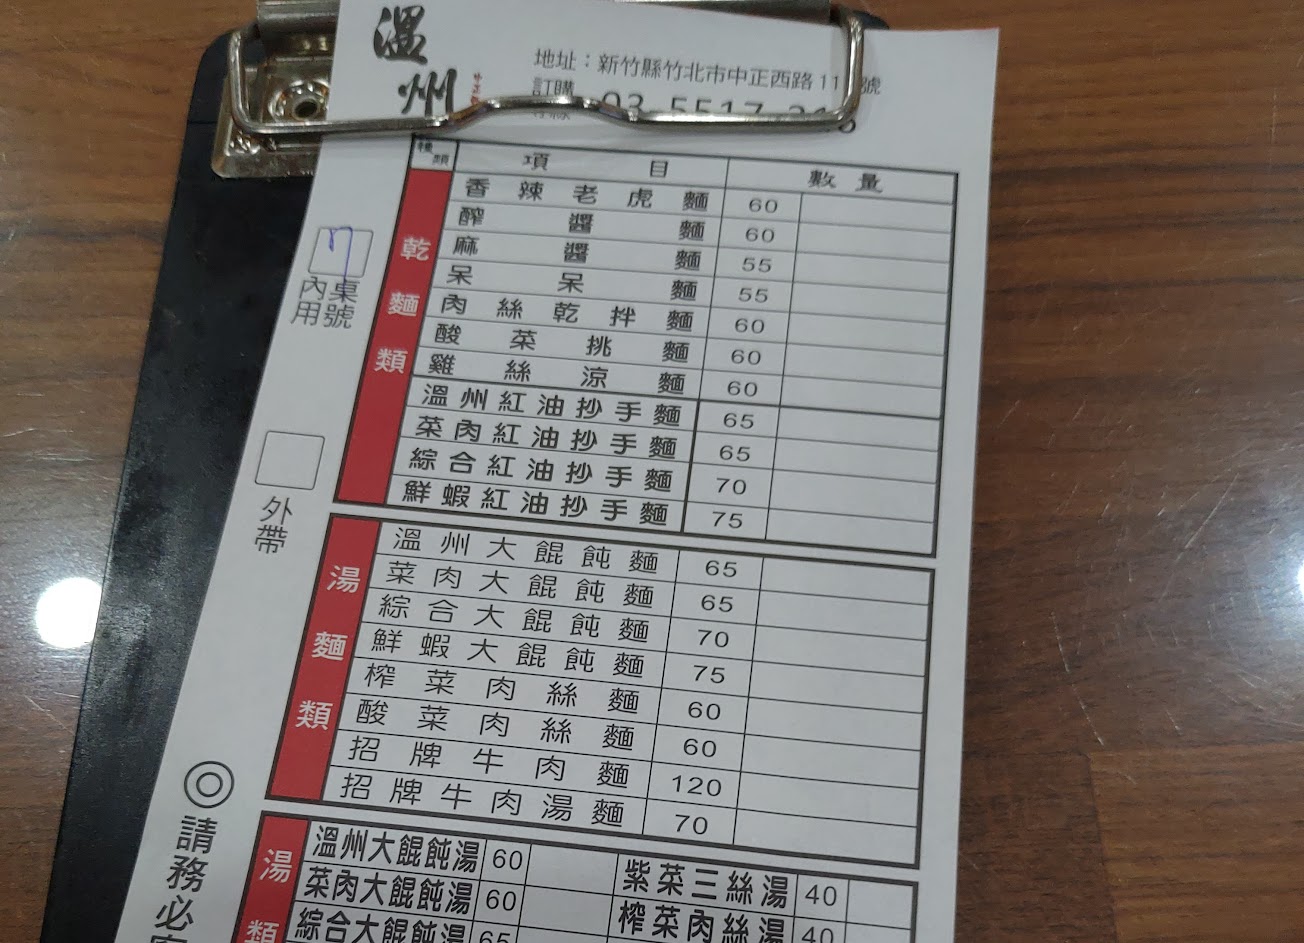 溫州
地址：新竹縣竹北市中正西路11 號
訂購 03-5517-
種類 項目 數量
乾麵類
香辣老虎麵 60
醡醬麵 60
麻醬麵 55
呆呆麵 55
肉絲乾拌麵 60
酸菜挑麵 60
雞絲涼麵 60
溫州紅油抄手麵 65
菜肉紅油抄手麵 65
綜合紅油抄手麵 70
鮮蝦紅油抄手麵 75
湯麵類
溫州大餛飩麵 65
菜肉大餛飩麵 65
綜合大餛飩麵 70
鮮蝦大餛飩麵 75
榨菜肉絲麵 60
酸菜肉絲麵 60
招牌牛肉麵 120
招牌牛肉湯麵 70
湯類
溫州大餛飩湯 60 紫菜三絲湯 40
菜肉大餛飩湯 60 榨菜肉絲湯 40
綜合大餛飩湯 65
7
內用桌號
外帶
◎請務必